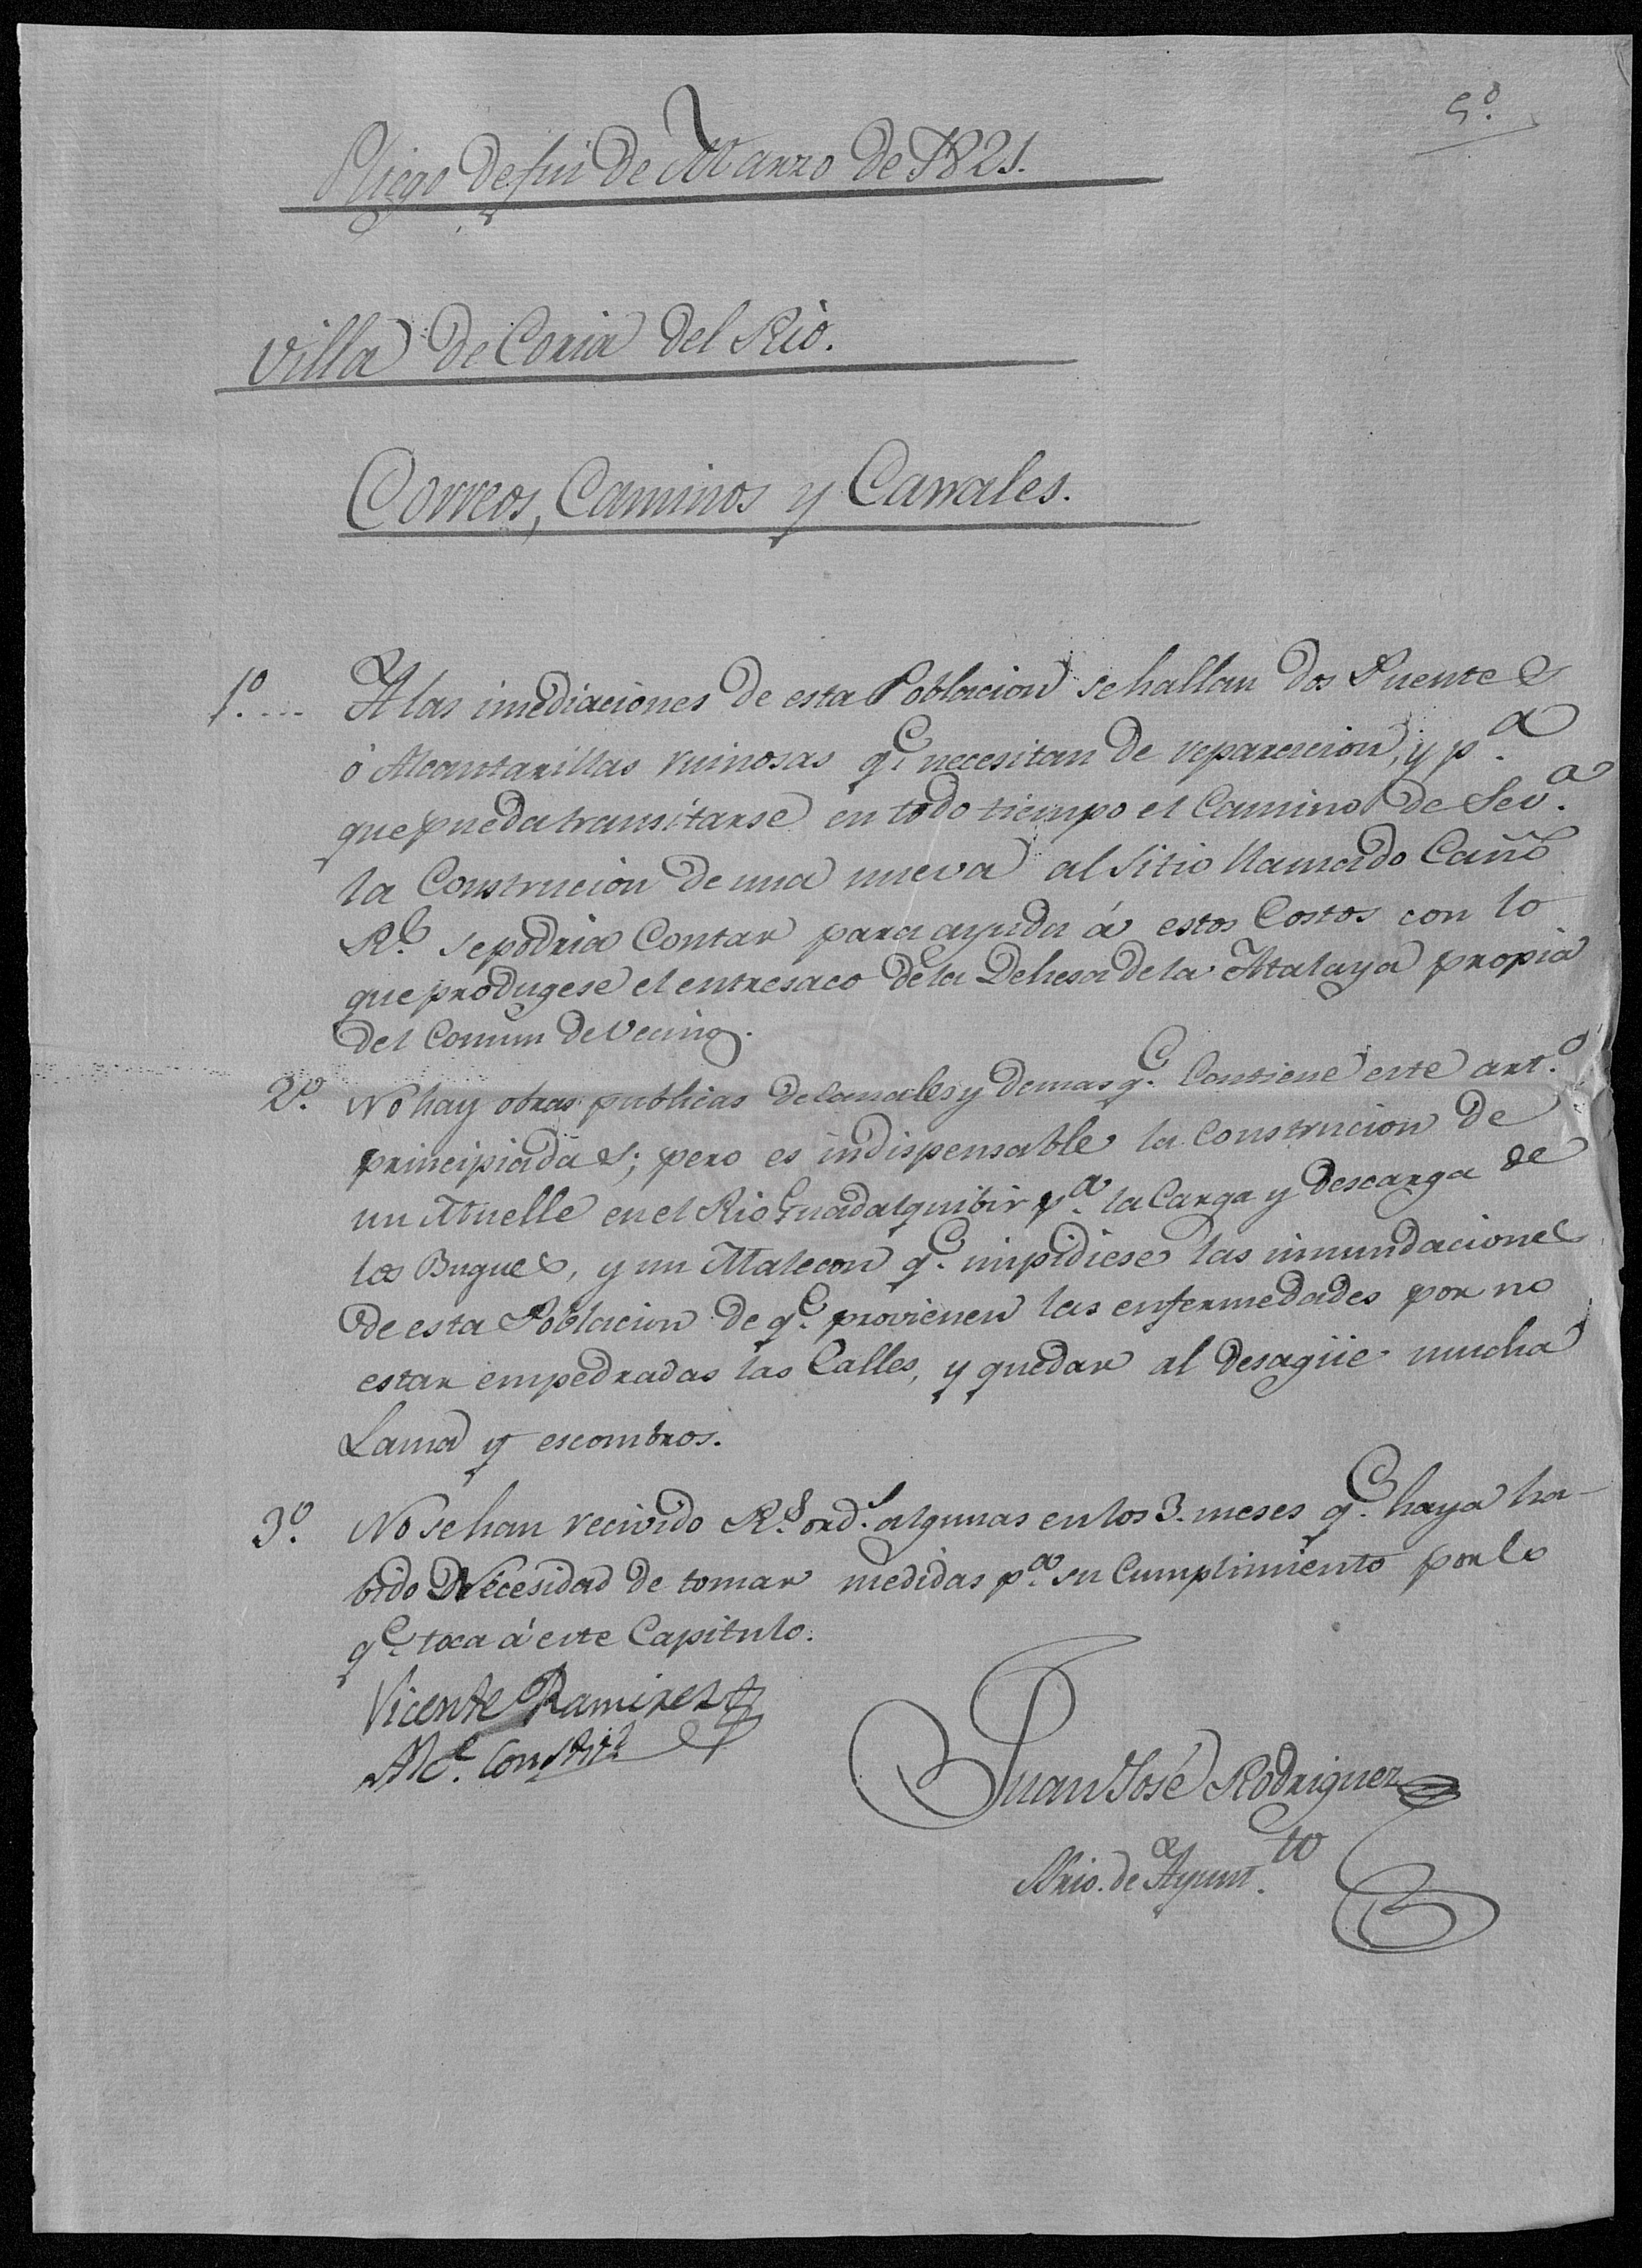 5º.
Pliego de fin de Marzo de 1821.
Villa de Coria del Rio.
Correos, Caminos y Canales.
1º.... A las imediaciones de esta Poblacion se hallan dos Puentes
ò Alcantarillas ruinosas q.e necesitan de reparacion, y p.a
que pueda transitarse en todo tiempo el Camino de Sev.a
la Construcion de una nueva al Sitio llamado Caño
R.l se podria Contar para ayuda á estos Costos con lo
que produgese el entresaco de la Dehesa de la Atalaya propia
del Comun de Vecinos.
2º. No hay obras publicas de Canales y demas q.e Contiene este art.o
principiadas; pero es indispensable la Construcion de
un Muelle en el Rio Guadalquibir p.a la Carga y descarga de
los Buques, y un Malecon q.e impidiese las inmundaciones
de esta Poblacion de q.e provienen las enfermedades por no
estar empedradas las Calles, y quedar al desagüe mucha
Lama y escombros.
3º. No se han recivido R.s ord.s algunas en los 3. meses q.e haya ha-
bido Necesidad de tomar medidas p.a su Cumplimiento por lo
q.e toca á este Capitulo.
Vicente Ramirez
Alc.e Constit.l
Juan José Rodriguez
Srio. de Ayunt.to